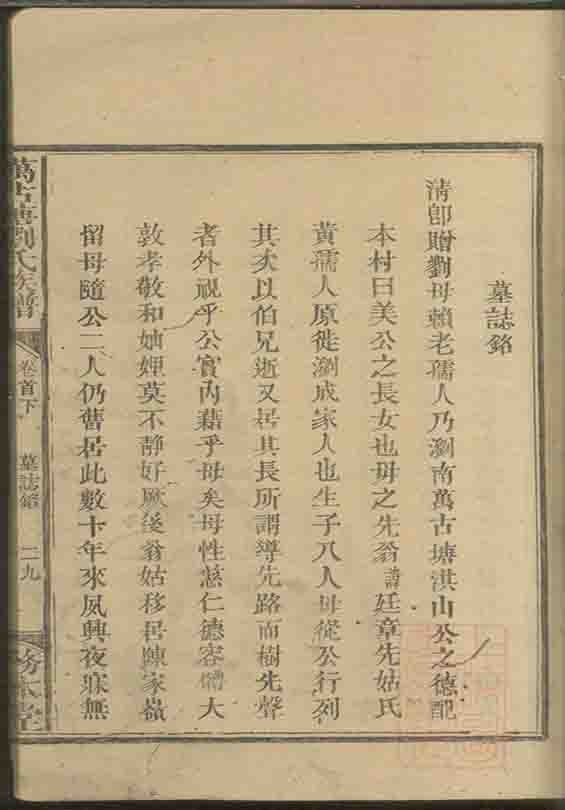 墓誌銘
清郎贈劉母賴老孺人乃瀏南萬古塘淇山公之德配
本村曰美公之長女也母之先翁諱廷章先姑氏
黃孺人原徙瀏成家人也生子八人母從公行列
其次以伯兄逝又居其長所謂導先路而樹先聲
者外視乎公實內藉乎母矣母性慈仁德容大
敦孝敬和妯娌莫不靜好厥後翁姑移居陳家嶺
留母隨公二人仍舊居此數十年來夙興夜寐無
萬古塘劉氏族譜
卷首下
墓誌銘
二九